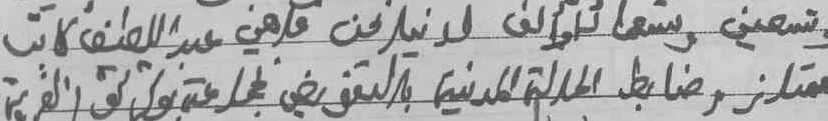 وتسعين وتسعمائة وألف لدينا نحن قارهي عبد اللطيف كاتب
ممتاز وضابط الحالة المدنية بالتفويض لجماعة بوتوتوا الفريعة